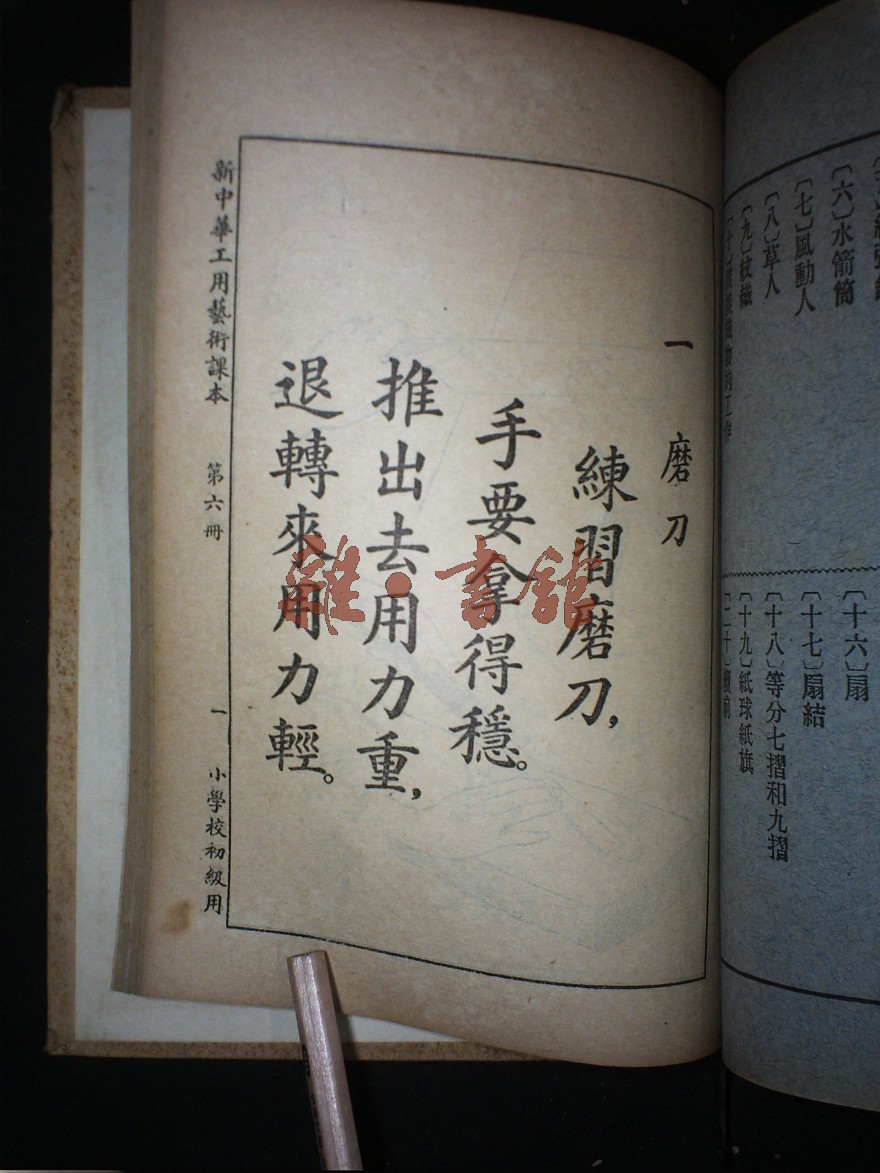 〔六〕水箭筒
〔七〕風動人
〔八〕草人
〔九〕紋織
〔十六〕扇
〔十七〕扇結
〔十八〕等分七摺和九摺
〔十九〕紙球紙旗
一 磨刀
練習磨刀，
手要拿得穩。
推出去用力重，
退轉來用力輕。
新中華工用藝術課本 第六冊 一 小學校初級用
雜·書館